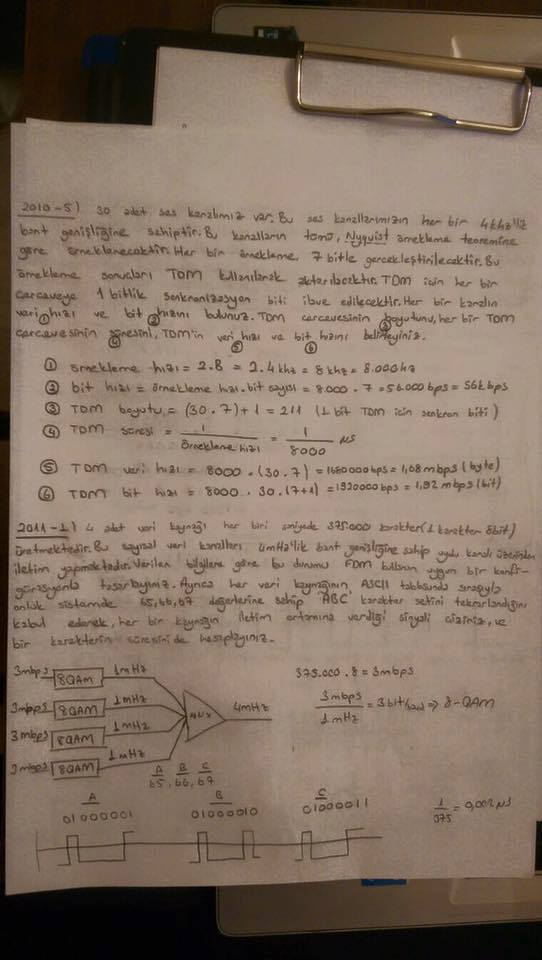 2010-5) 30 adet ses kanalımız var. Bu ses kanallarımızın her bir 4khz'lik
bant genişliğine sahiptir. Bu kanalların tümü, Nyquist örnekleme teoremine
göre örneklenecektir. Her bir örnekleme 7 bitle gerçekleştirilecektir. Bu
örnekleme sonuçları TDM kullanılarak aktarılacaktır. TDM için her bir
çerçeveye 1 bitlik senkronizasyon biti ilave edilecektir. Her bir kanalın
veri hızı ve bit hızını bulunuz. TDM çerçevesinin boyutunu, her bir TDM
① ② ③
çerçevesinin süresini, TDM'in veri hızı ve bit hızını belirleyiniz.
④ ⑤ ⑥
① örnekleme hızı = 2.B = 2.4khz = 8khz = 8.000hz
② bit hızı = örnekleme hızı.bit sayısı = 8.000 . 7 = 56.000bps = 56kbps
③ TDM boyutu = (30.7)+1 = 211 (1 bit TDM için senkron biti)
④ TDM süresi = 1/örnekleme hızı = 1/8000 µs
⑤ TDM veri hızı = 8000 . (30.7) = 1680000bps = 1,68mbps (byte)
⑥ TDM bit hızı = 8000 . 30.(7+1) = 1920000bps = 1,92mbps (bit)
2011-1) 4 adet veri kaynağı her biri saniyede 375.000 karakter (1 karakter 8bit)
üretmektedir. Bu sayısal veri kanalları 4mHz'lik bant genişliğine sahip uydu kanalı üzerinden
iletim yapmaktadır. Verilen bilgilere göre bu durumu FDM kullanan uygun bir konfi-
gürasyonla tasarlayınız. Ayrıca her veri kaynağının ASCII tablosunda sırasıyla
onluk sistemde 65,66,67 değerlerine sahip ABC karakter setini tekrarlandığını
kabul ederek, her bir kaynağın iletim ortamına verdiği sinyali çiziniz, ve
bir karakterin süresini de hesaplayınız.
3mbps 8QAM 1mHz
3mbps 8QAM 1mHz
3mbps 8QAM 1mHz
3mbps 8QAM 1mHz
MUX 4mHz
375.000 . 8 = 3mbps
3mbps/1mHz = 3bit/baud ⇒ 8-QAM
A B C
65, 66, 67
A B C
01000001 01000010 01000011
1/375 = 0,002 µs